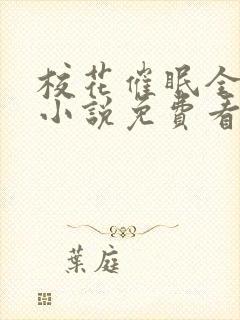 校花催眠全
小說免費看
葉庭